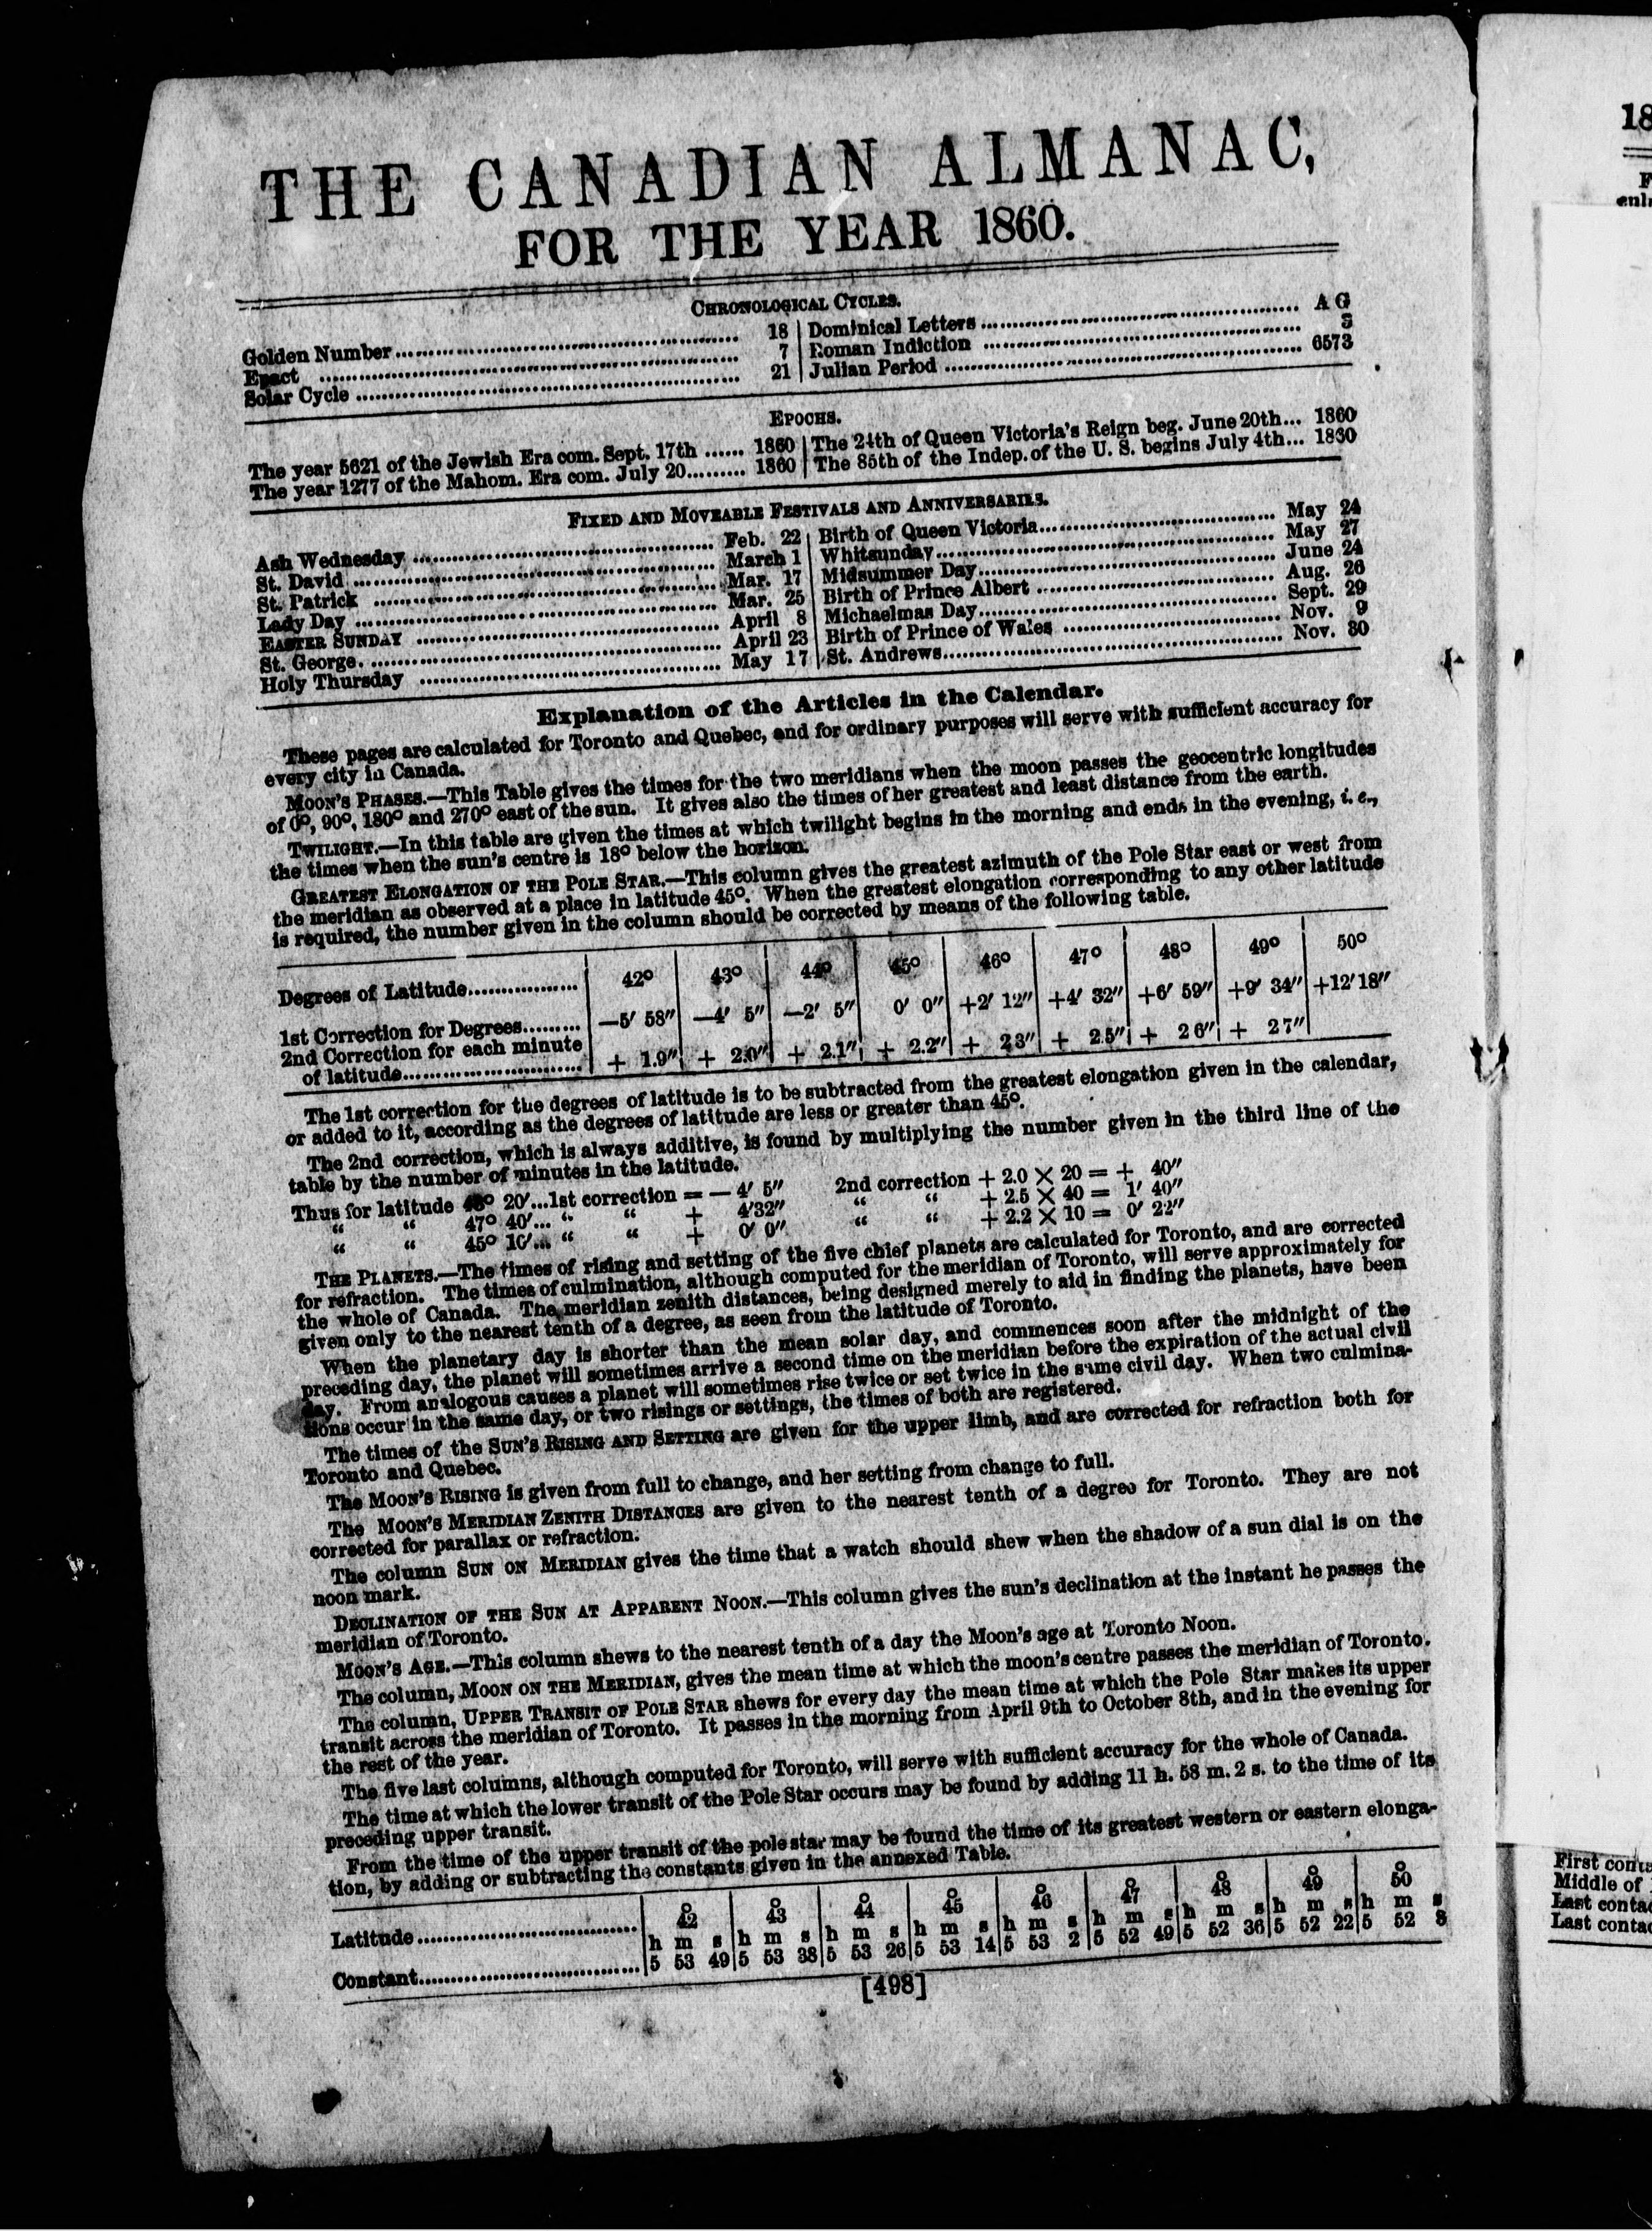 THE CANADIAN ALMANAC,
FOR THE YEAR 1860.
CHRONOLOGICAL CYCLES.
Golden Number........ 18 | Dominical Letters ........ A G
Epact ........ 7 | Roman Indiction ........ 3
Solar Cycle ........ 21 | Julian Period ........ 6573
EPOCHS.
The year 5621 of the Jewish Era com. Sept. 17th ...... 1860 | The 24th of Queen Victoria's Reign beg. June 20th... 1860
The year 1277 of the Mahom. Era com. July 20......... 1860 | The 85th of the Indep. of the U. S. begins July 4th... 1860
FIXED AND MOVEABLE FESTIVALS AND ANNIVERSARIES.
Ash Wednesday ........ Feb. 22 | Birth of Queen Victoria........ May 24
St. David ........ March 1 | Whitsunday........ May 27
St. Patrick ........ Mar. 17 | Midsummer Day........ June 24
Lady Day ........ Mar. 25 | Birth of Prince Albert ........ Aug. 26
EASTER SUNDAY ........ April 8 | Michaelmas Day........ Sept. 29
St. George. ........ April 23 | Birth of Prince of Wales ........ Nov. 9
Holy Thursday ........ May 17 | St. Andrews........ Nov. 30
Explanation of the Articles in the Calendar.
These pages are calculated for Toronto and Quebec, and for ordinary purposes will serve with sufficient accuracy for
every city in Canada.
MOON'S PHASES.—This Table gives the times for the two meridians when the moon passes the geocentric longitudes
of 0°, 90°, 180° and 270° east of the sun. It gives also the times of her greatest and least distance from the earth.
TWILIGHT.—In this table are given the times at which twilight begins in the morning and ends in the evening, i. e.,
the times when the sun's centre is 18° below the horizon.
GREATEST ELONGATION OF THE POLE STAR.—This column gives the greatest azimuth of the Pole Star east or west from
the meridian as observed at a place in latitude 45°. When the greatest elongation corresponding to any other latitude
is required, the number given in the column should be corrected by means of the following table.
Degrees of Latitude........ | 42° | 43° | 44° | 45° | 46° | 47° | 48° | 49° | 50°
1st Correction for Degrees......... | —5′ 58″ | —4′ 5″ | —2′ 5″ | 0′ 0″ | +2′ 12″ | +4′ 32″ | +6′ 59″ | +9′ 34″ | +12′ 18″
2nd Correction for each minute
of latitude........ | + 1.9″ | + 2.0″ | + 2.1″ | + 2.2″ | + 2 3″ | + 2.5″ | + 2 6″ | + 2 7″ |
The 1st correction for the degrees of latitude is to be subtracted from the greatest elongation given in the calendar,
or added to it, according as the degrees of latitude are less or greater than 45°.
The 2nd correction, which is always additive, is found by multiplying the number given in the third line of the
table by the number of minutes in the latitude.
Thus for latitude 43° 20′...1st correction = — 4′ 5″ 2nd correction + 2.0 × 20 = + 40″
“ “ 47° 40′... “ “ + 4′32″ “ “ + 2.5 × 40 = 1′ 40″
“ “ 45° 10′... “ “ + 0′ 0″ “ “ + 2.2 × 10 = 0′ 22″
THE PLANETS.—The times of rising and setting of the five chief planets are calculated for Toronto, and are corrected
for refraction. The times of culmination, although computed for the meridian of Toronto, will serve approximately for
the whole of Canada. The meridian zenith distances, being designed merely to aid in finding the planets, have been
given only to the nearest tenth of a degree, as seen from the latitude of Toronto.
When the planetary day is shorter than the mean solar day, and commences soon after the midnight of the
preceding day, the planet will sometimes arrive a second time on the meridian before the expiration of the actual civil
day. From analogous causes a planet will sometimes rise twice or set twice in the same civil day. When two culmina-
tions occur in the same day, or two risings or settings, the times of both are registered.
The times of the SUN'S RISING AND SETTING are given for the upper limb, and are corrected for refraction both for
Toronto and Quebec.
The MOON'S RISING is given from full to change, and her setting from change to full.
The MOON'S MERIDIAN ZENITH DISTANCES are given to the nearest tenth of a degree for Toronto. They are not
corrected for parallax or refraction.
The column SUN ON MERIDIAN gives the time that a watch should shew when the shadow of a sun dial is on the
noon mark.
DECLINATION OF THE SUN AT APPARENT NOON.—This column gives the sun's declination at the instant he passes the
meridian of Toronto.
MOON'S AGE.—This column shews to the nearest tenth of a day the Moon's age at Toronto Noon.
The column, MOON ON THE MERIDIAN, gives the mean time at which the moon's centre passes the meridian of Toronto.
The column, UPPER TRANSIT OF POLE STAR shews for every day the mean time at which the Pole Star makes its upper
transit across the meridian of Toronto. It passes in the morning from April 9th to October 8th, and in the evening for
the rest of the year.
The five last columns, although computed for Toronto, will serve with sufficient accuracy for the whole of Canada.
The time at which the lower transit of the Pole Star occurs may be found by adding 11 h. 58 m. 2 s. to the time of its
preceding upper transit.
From the time of the upper transit of the pole star may be found the time of its greatest western or eastern elonga-
tion, by adding or subtracting the constants given in the annexed Table.
Latitude........ | 42° | 43° | 44° | 45° | 46° | 47° | 48° | 49° | 50°
h m s | h m s | h m s | h m s | h m s | h m s | h m s | h m s | h m s
Constant........ | 5 53 49 | 5 53 38 | 5 53 26 | 5 53 14 | 5 53 2 | 5 52 49 | 5 52 36 | 5 52 22 | 5 52 8
[498]
18
First
Middle of
Last
Last